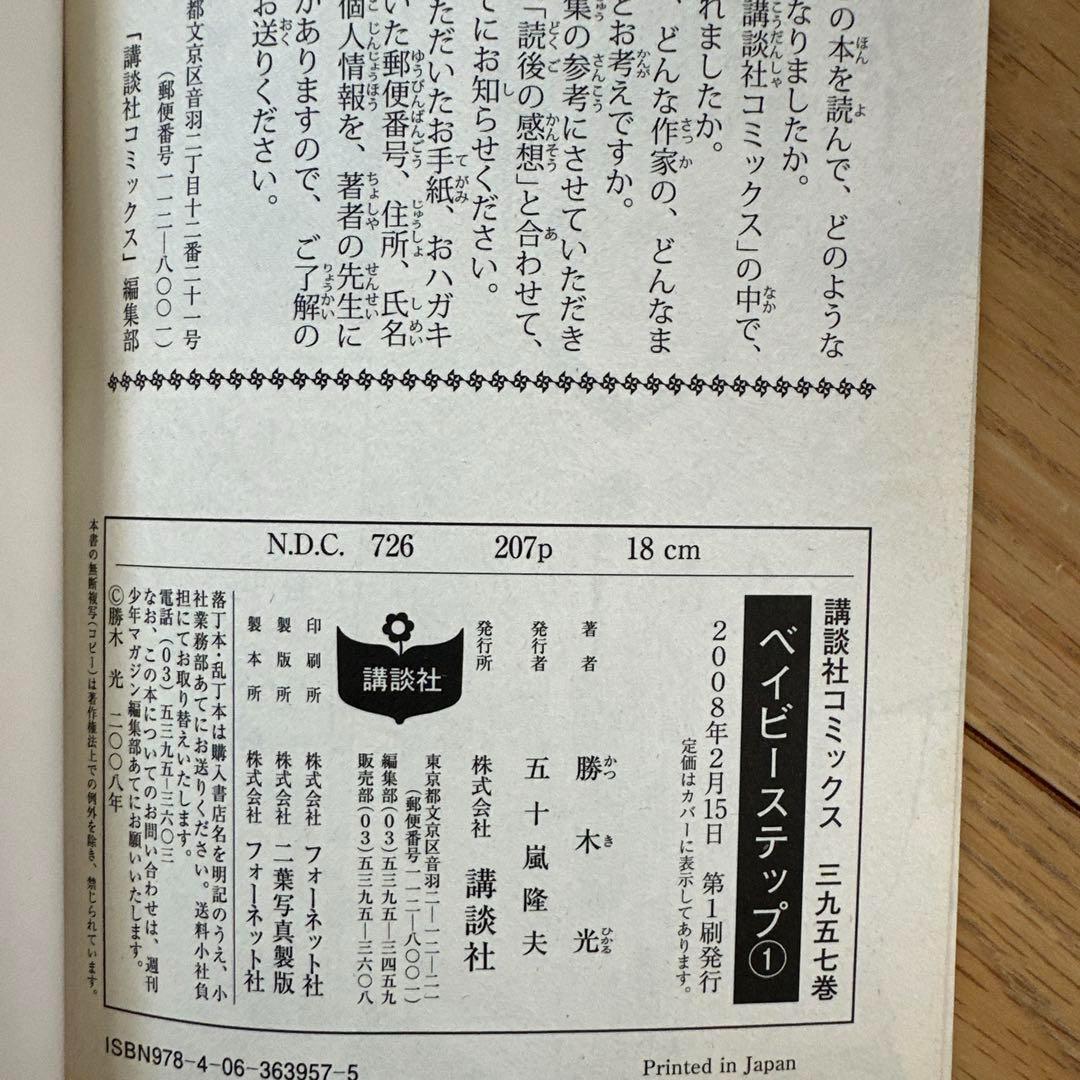 の本を読んで、どのような
なりましたか。
講談社コミックス」の中で、
れましたか。
、どんな作家の、どんなま
とお考えですか。
集の参考にさせていただき
「読後の感想」と合わせて、
てにお知らせください。
ただいたお手紙、おハガキ
いた郵便番号、住所、氏名
個人情報を、著者の先生に
がありますので、ご了解の
お送りください。
都文京区音羽二丁目十二番二十一号
(郵便番号一一二―八〇〇一)
「講談社コミックス」編集部
N.D.C. 726 207p 18 cm
講談社コミックス 三九五七巻
ベイビーステップ①
2008年2月15日 第1刷発行
定価はカバーに表示してあります。
著者 勝木光
発行者 五十嵐隆夫
発行所 株式会社 講談社
東京都文京区音羽二―一二―二一
(郵便番号一一二―八〇〇一)
編集部(03)五三九五―三四五九
販売部(03)五三九五―三六〇八
講談社
印刷所 株式会社 フォーネット社
製版所 株式会社 二葉写真製版
製本所 株式会社 フォーネット社
落丁本・乱丁本は購入書店名を明記のうえ、小
社業務部あてにお送りください。送料小社負
担にてお取り替えいたします。
電話(03)五三九五―三六〇三
なお、この本についてのお問い合わせは、週刊
少年マガジン編集部あてにお願いいたします。
©勝木 光 二〇〇八年
本書の無断複写(コピー)は著作権法上での例外を除き、禁じられています。
ISBN978-4-06-363957-5
Printed in Japan